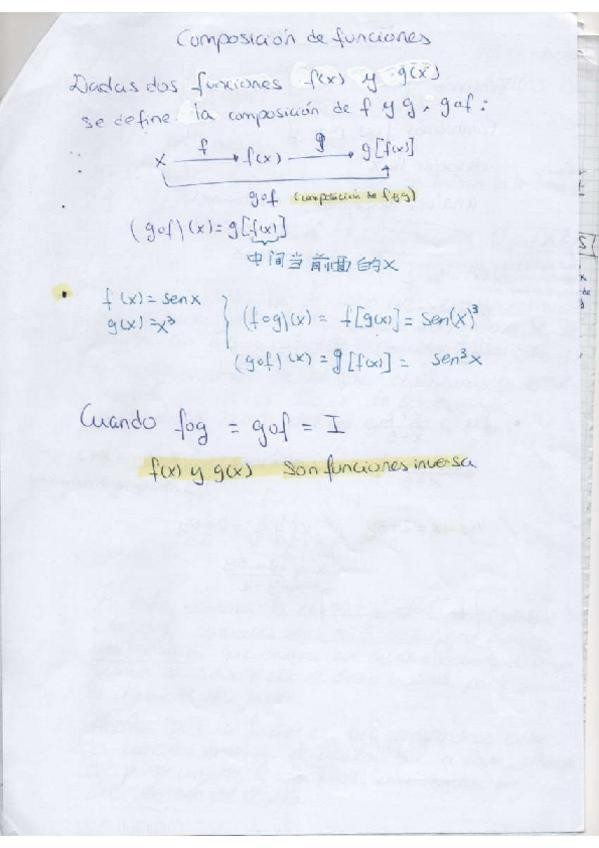 Composición de funciones
Dadas dos funciones f(x) y g(x)
se define la composición de f y g, gof:
x f f(x) g g[f(x)]
gof (composición de f y g)
(gof)(x) = g[f(x)]
中间当前面的x
f(x) = sen x
g(x) = x³
(fog)(x) = f[g(x)] = sen(x)³
(gof)(x) = g[f(x)] = sen³x
Cuando fog = gof = I
f(x) y g(x) Son funciones inversa